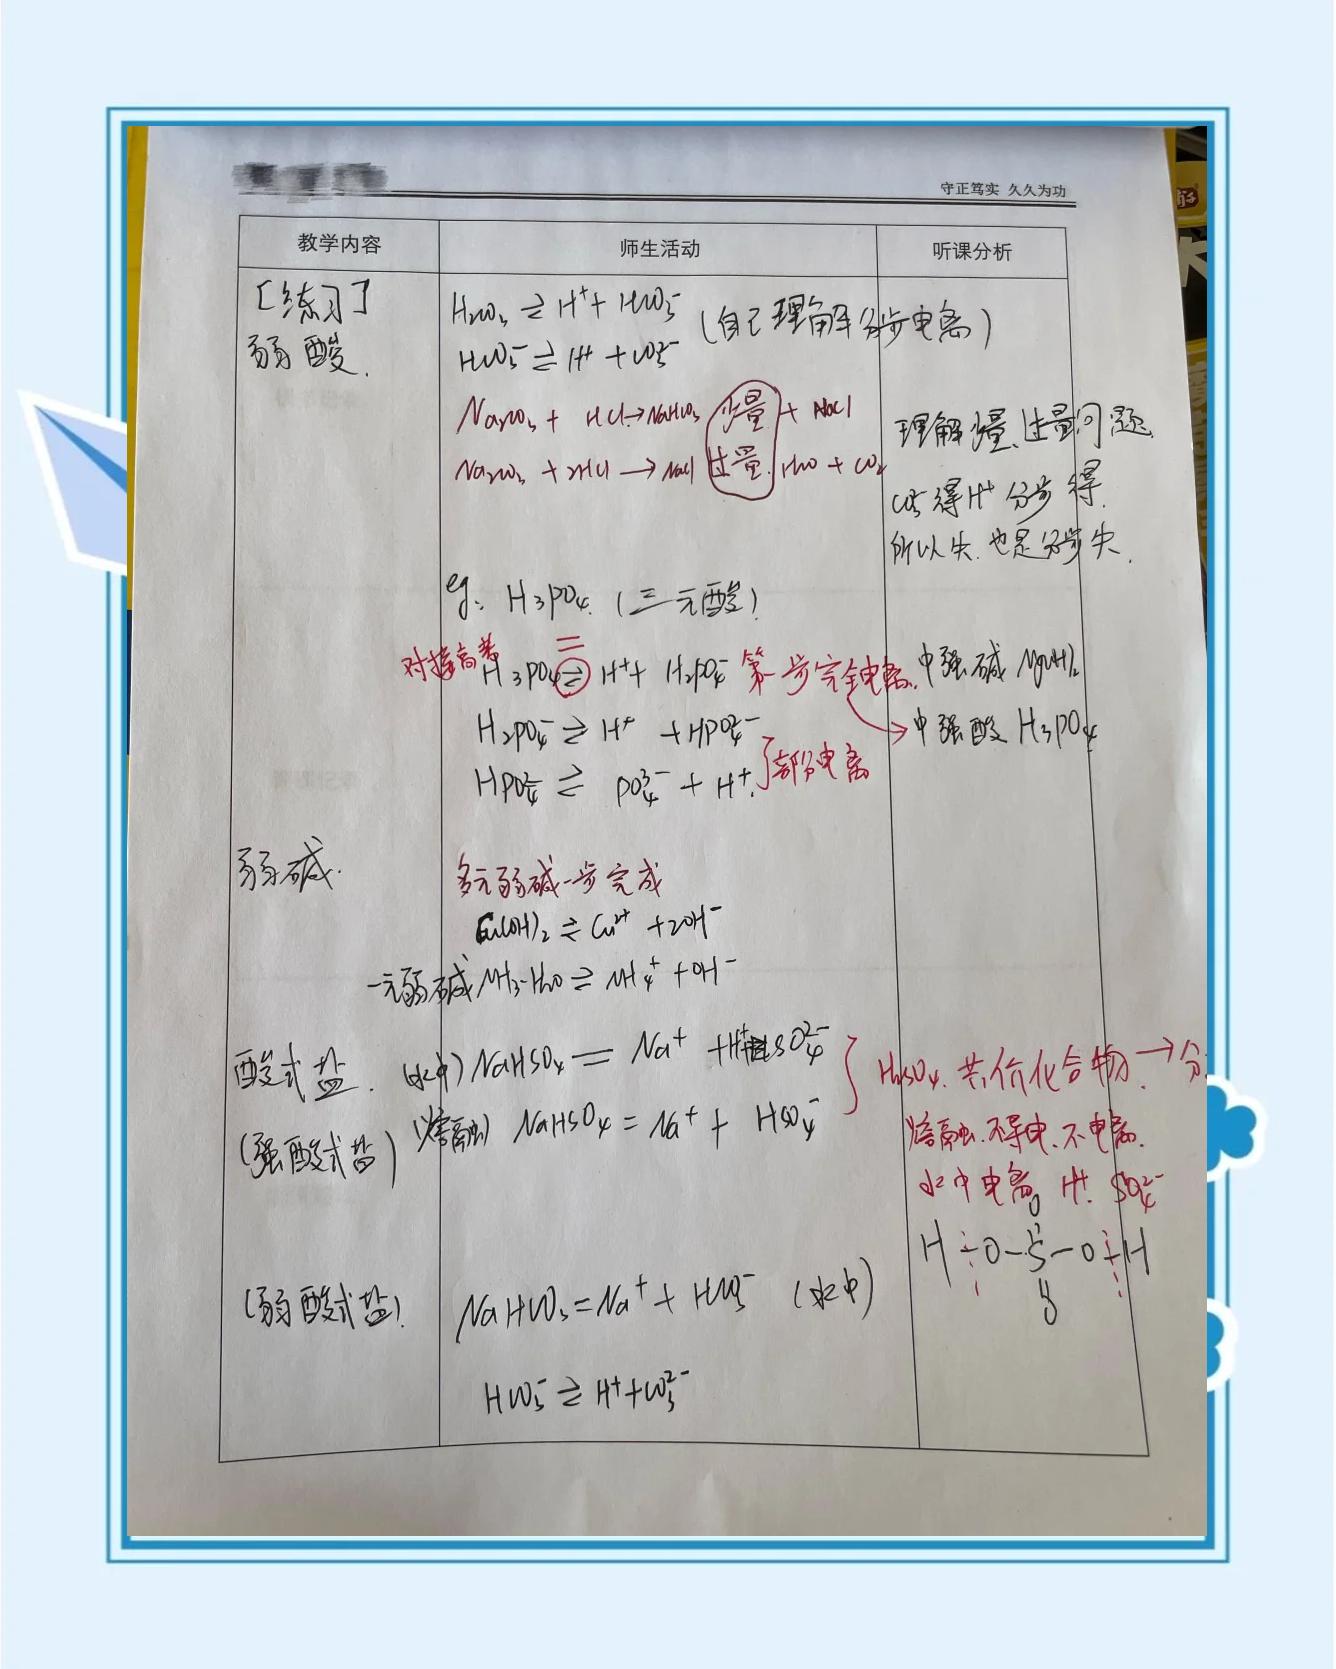 守正笃实 久久为功
教学内容 师生活动 听课分析
[练习]
弱酸.
H₂CO₃ ⇌ H⁺ + HCO₃⁻
HCO₃⁻ ⇌ H⁺ + CO₃²⁻
(自己理解分步电离)
Na₂CO₃ + HCl → NaHCO₃ 少量 + NaCl
Na₂CO₃ + 2HCl → NaCl 过量 H₂O + CO₂
理解少量、过量问题
CO₃²⁻得H⁺分步得.
所以失.也是分步失.
eg: H₃PO₄. (三元酸)
对接高考
=
H₃PO₄ ⇌ H⁺ + H₂PO₄⁻ 第一步完全电离.
中强碱 Mg(OH)₂
H₂PO₄⁻ ⇌ H⁺ + HPO₄²⁻
→ 中强酸 H₃PO₄
HPO₄²⁻ ⇌ PO₄³⁻ + H⁺.
}部分电离
弱碱.
多元弱碱一步完成
Cu(OH)₂ ⇌ Cu²⁺ + 2OH⁻
一元弱碱 NH₃·H₂O ⇌ NH₄⁺ + OH⁻
酸式盐. (水中) NaHSO₄ = Na⁺ + H⁺ + SO₄²⁻
(强酸式盐) (熔融) NaHSO₄ = Na⁺ + HSO₄⁻
} H₂SO₄. 共价化合物. → 分
熔融.不导电.不电离.
水中电离 H⁺. SO₄²⁻
O
H - O - S - O - H
O
(弱酸式盐). NaHCO₃ = Na⁺ + HCO₃⁻ (水中)
HCO₃⁻ ⇌ H⁺ + CO₃²⁻